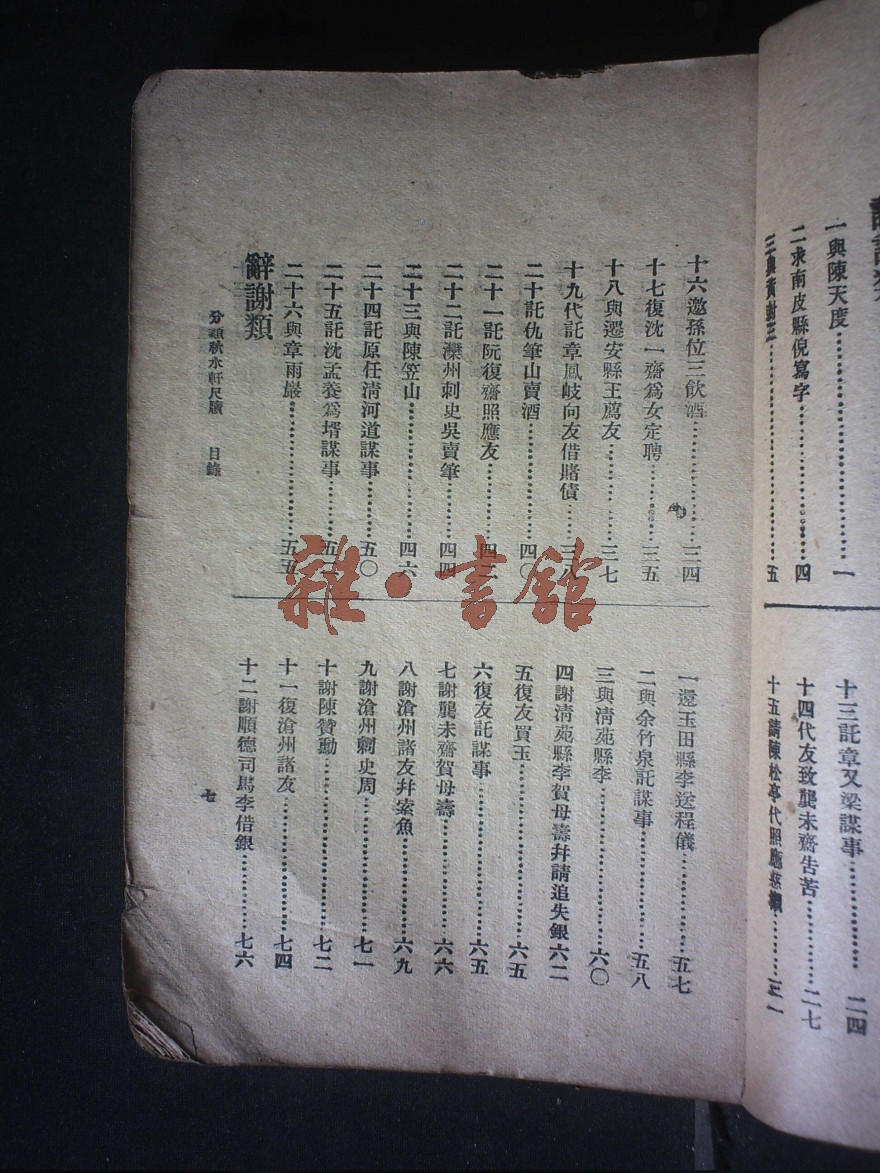 一與陳天度……一
二求南皮縣倪寫字……四
三與黃封三……五
十三託章又梁謀事……二四
十四代友致龔未齋告苦……二七
十五請陳松亭代照應慈櫬……三一
十六邀孫位三飲酒……三四
十七復沈一齋爲女定聘……三五
十八與遷安縣王薦友……三七
十九代託章鳳岐向友借賭債……三八
二十託仇筆山賣酒……四〇
二十一託阮復齋照應友……四二
二十二託灤州刺史吳賣筆……四四
二十三與陳笠山……四六
二十四託原任淸河道謀事……五〇
二十五託沈孟養爲壻謀事……五二
二十六與章雨巖……五五
辭謝類
一還玉田縣李送程儀……五七
二與余竹泉託謀事……五八
三與淸苑縣李……六〇
四謝淸苑縣李賀母壽幷請追失銀六二
五復友買玉……六五
六復友託謀事……六五
七謝龔未齋賀母壽……六六
八謝滄州諸友幷索魚……六九
九謝滄州刺史周……七一
十謝陳贊勳……七二
十一復滄州諸友……七四
十二謝順德司馬李借銀……七六
分類秋水軒尺牘 目錄
七
雜·書館